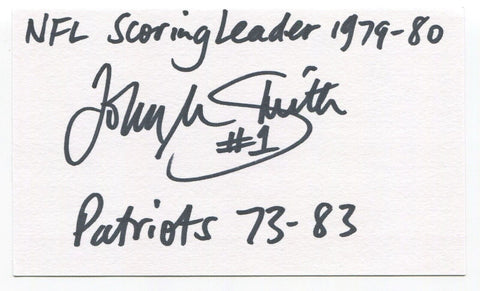 NFL Scoring Leader 1979-80
John Smith
#1
Patriots 73-83